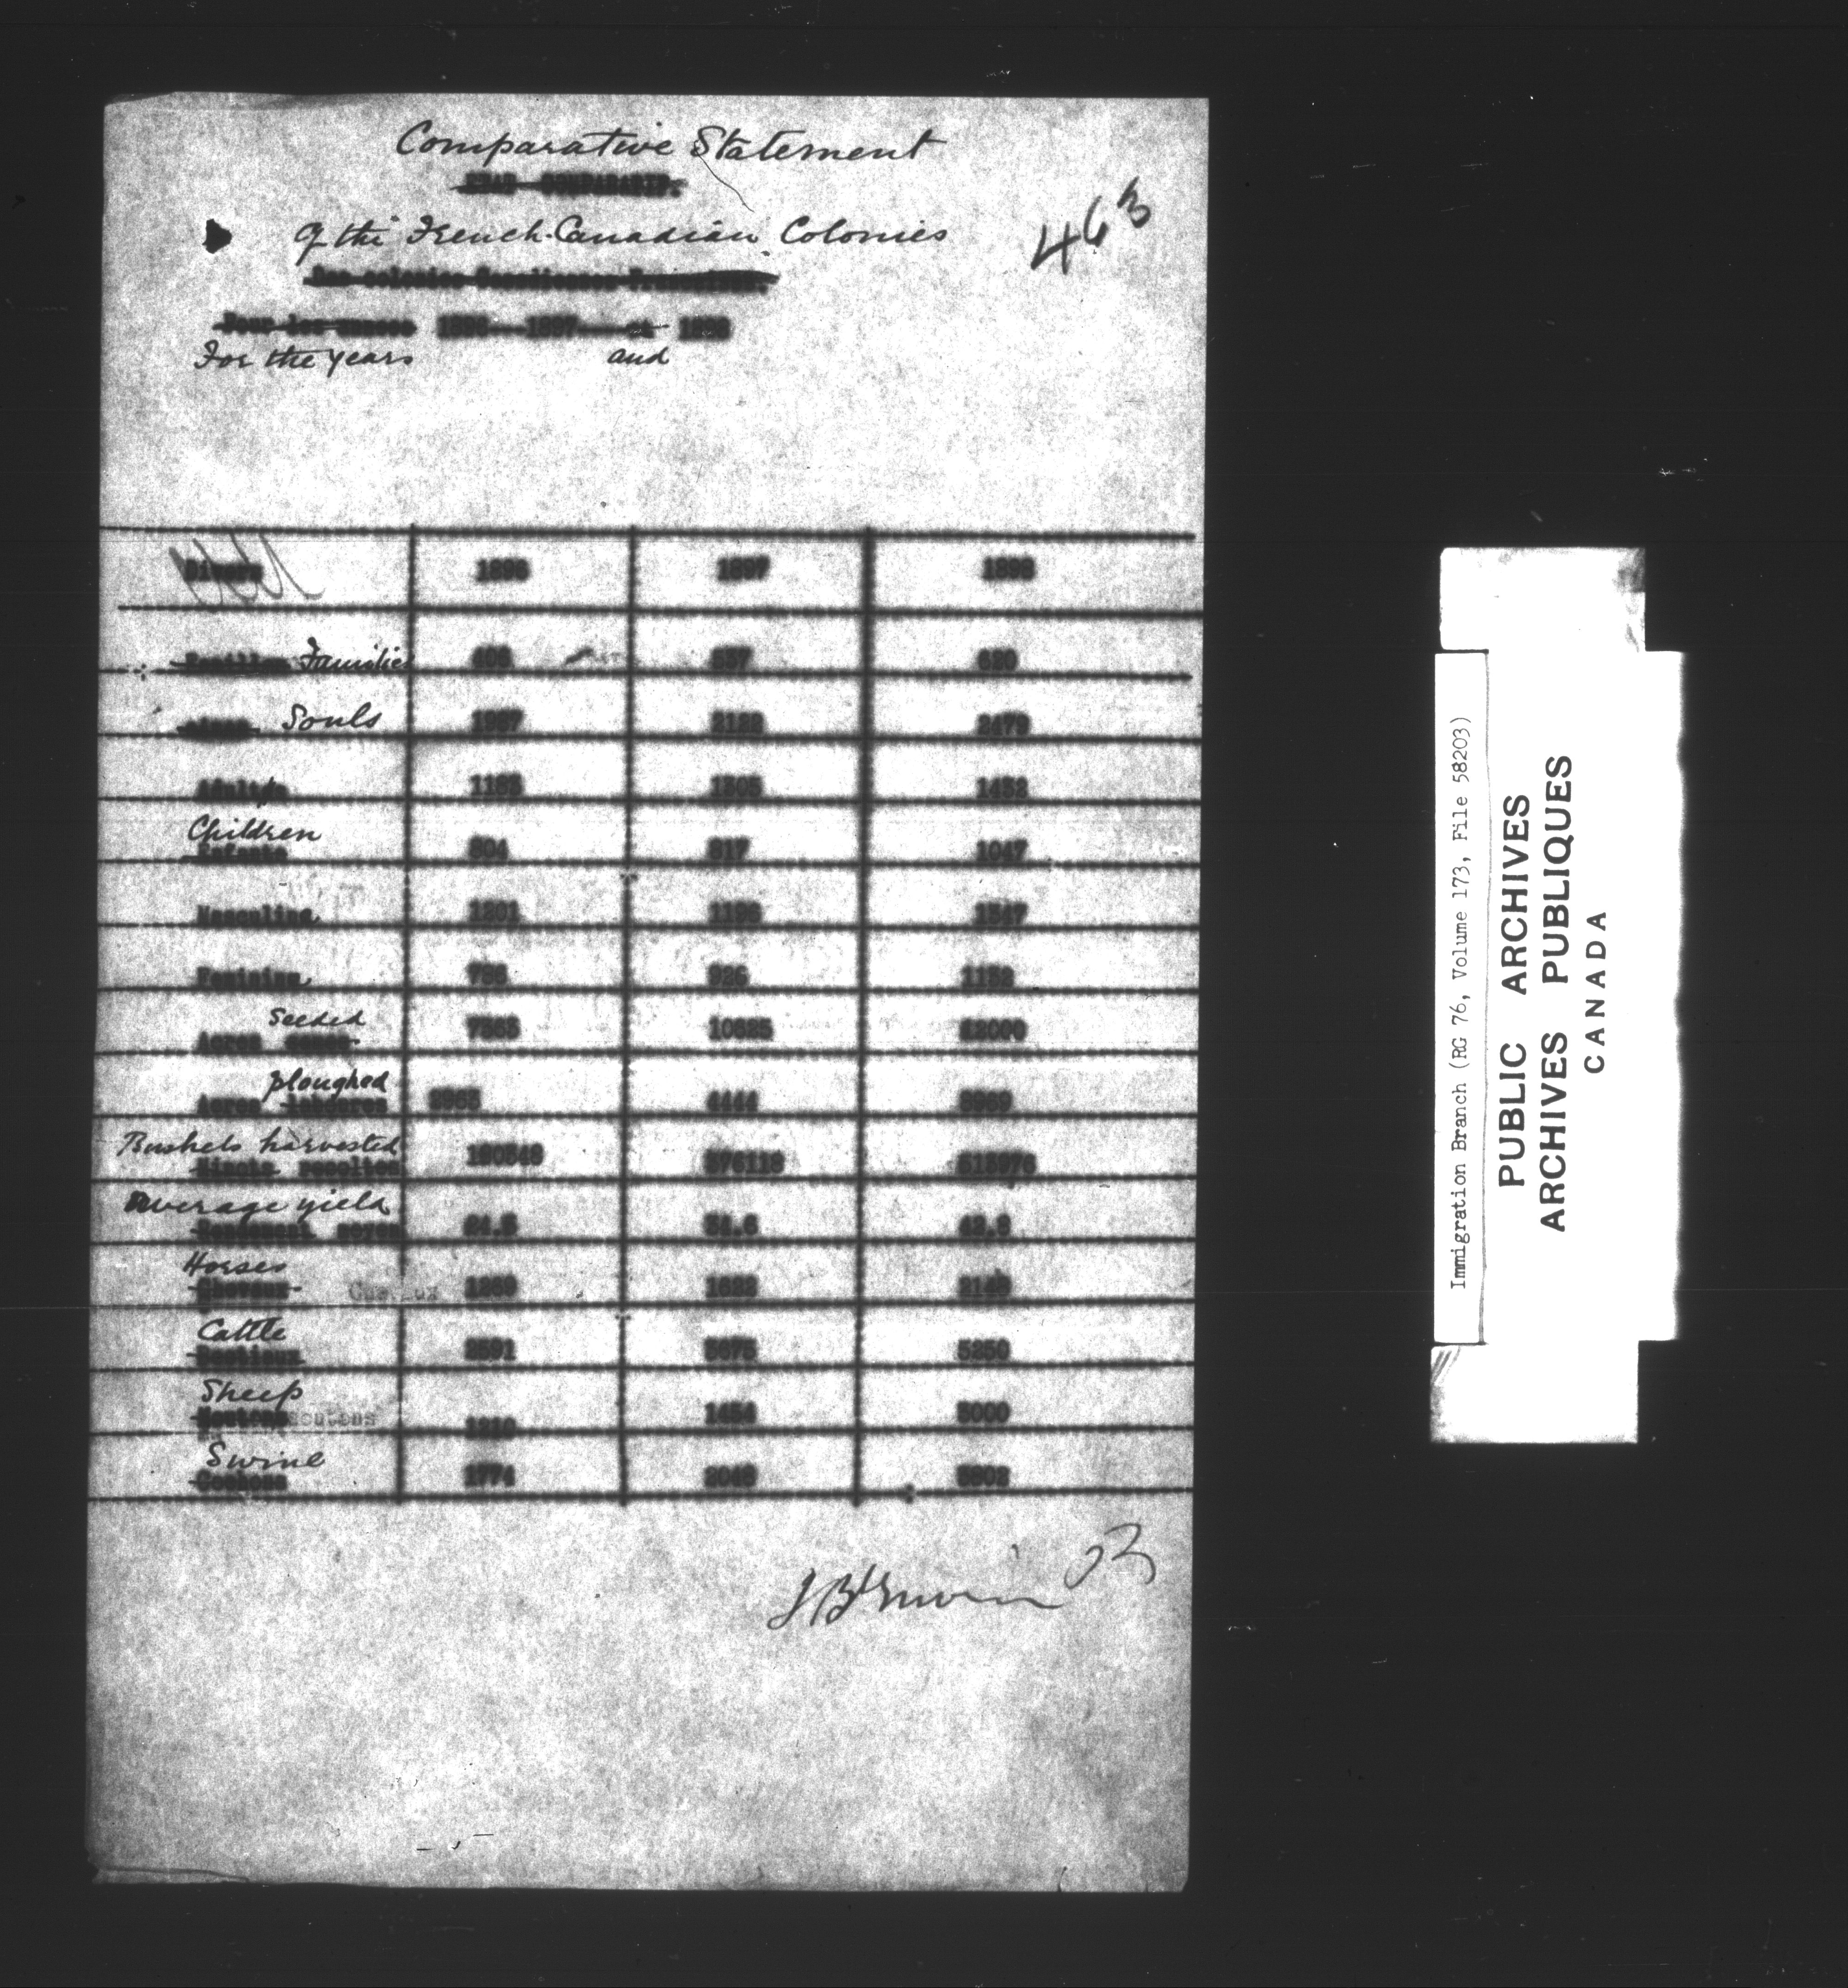 Comparative Statement
ETAT COMPARATIF.
463
Of the French-Canadian Colonies
Des colonies Canadiennes Françaises.
Pour les années 1896 1897 et 1898
For the years and
Divers 1896 1897 1898
Familles Families 408 537 620
Souls 1987 2122 2479
Adults 1183 1305 1432
Children
Enfants 804 817 1047
Masculine 1201 1196 1347
Feminine 786 926 1132
seeded
Acres semés 7363 10625 12000
ploughed
Acres labourés 2963 4444
Bushels harvested
Minots recoltés
Average yield
Rendement moyen 24.5 34.6
Horses
Chevaux 1269 1622
Cattle
Bestiaux 2591 3675 5250
Sheep
Moutons moutons 1210 1454 3000
Swine
Cochons 1774 2048
Immigration Branch (RG 76, Volume 173, File 58203)
PUBLIC ARCHIVES
ARCHIVES PUBLIQUES
CANADA